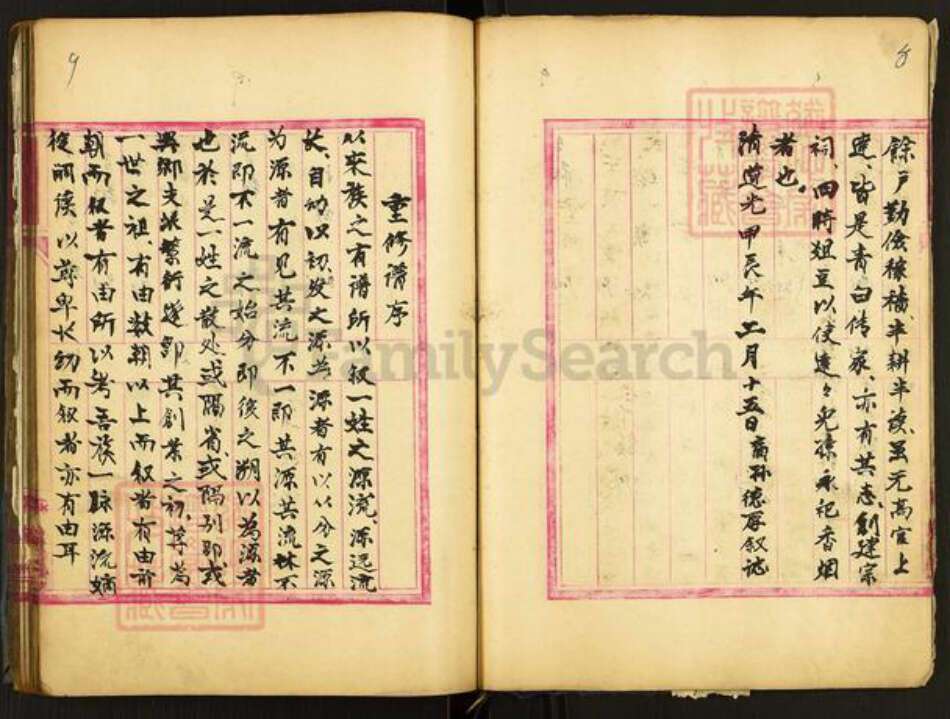 8
餘戶勤儉稼穡、半耕半读、虽无高官上
達、皆是青白传家、亦有其志、創建宗
祠、四時俎豆以使達々兒孫永祀香烟
者也。
清道光甲辰年二月十五日裔孙德厚叙誌
9
重修谱序
以宋族之有谱所以叙一姓之源流、源远流
长、自幼以认发之源共源者有以以分之源
为源者有见其流不一即其源共流林不
流即不一流之始分即後之朔以為源者
也於是一姓之散处或隔省或隔别郡或
異鄉支派繁衍遂即其創業之初尊為
一世之祖、有由数朝以上而叙者有由前
朝而叙者有由所以考吾族一脉源流嫡
後嗣读以尊卑长幼而叙者亦有由耳
FamilySearch